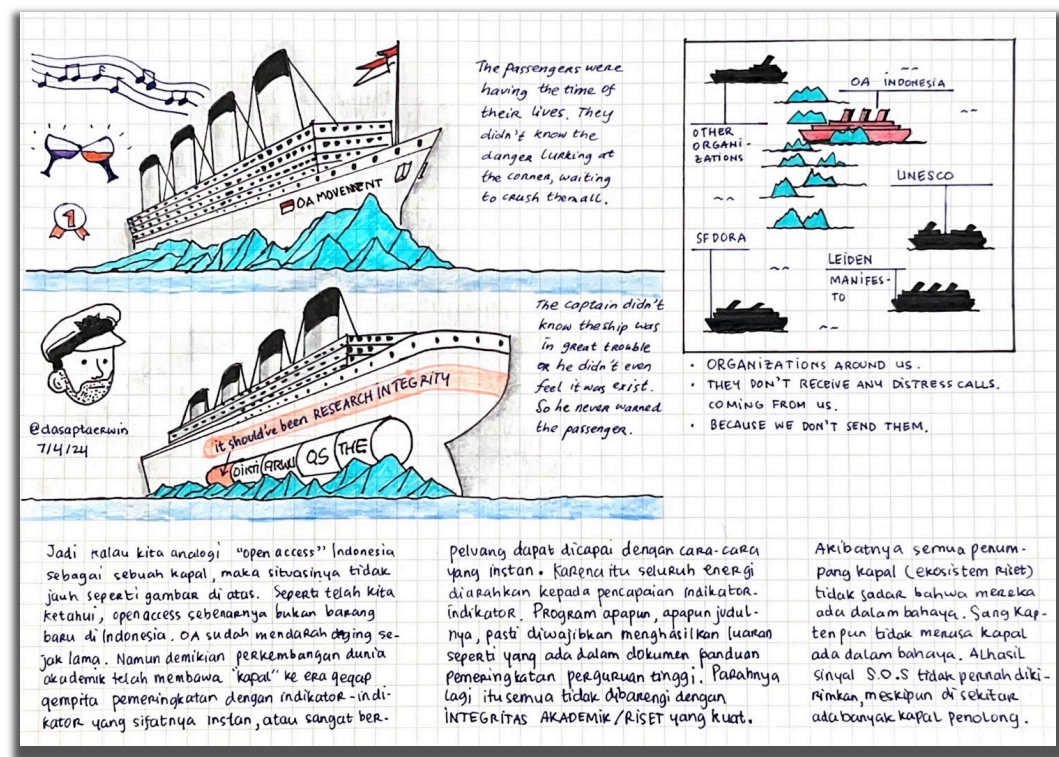 The passengers were
having the time of
their lives. They
didn't know the
danger lurking at
the corner, waiting
to crush them all.
1
OA MOVEMENT
OTHER
ORGANI-
ZATIONS
OA INDONESIA
UNESCO
SFDORA
LEIDEN
MANIFES-
TO
The captain didn't
know the ship was
in great trouble
or he didn't even
feel it was exist.
So he never warned
the passenger.
@dasaptaerwin
7/4/24
it should've been RESEARCH INTEGRITY
DIKTI ARWU QS THE
• ORGANIZATIONS AROUND US.
• THEY DON'T RECEIVE ANY DISTRESS CALLS.
COMING FROM US.
• BECAUSE WE DON'T SEND THEM.
Jadi kalau kita analogi "open access" Indonesia
sebagai sebuah kapal, maka situasinya tidak
jauh seperti gambar di atas. Seperti telah kita
ketahui, open access sebenarnya bukan barang
baru di Indonesia. OA sudah mendarah daging se-
jak lama. Namun demikian perkembangan dunia
akademik telah membawa "kapal" ke era gegap
gempita pemeringkatan dengan indikator-indi-
kator yang sifatnya instan, atau sangat ber-
peluang dapat dicapai dengan cara-cara
yang instan. Karena itu seluruh energi
diarahkan kepada pencapaian indikator-
indikator. Program apapun, apapun judul-
nya, pasti diwajibkan menghasilkan luaran
seperti yang ada dalam dokumen panduan
pemeringkatan perguruan tinggi. Parahnya
lagi itu semua tidak dibarengi dengan
INTEGRITAS AKADEMIK/RISET yang kuat.
Akibatnya semua penum-
pang kapal (ekosistem riset)
tidak sadar bahwa mereka
ada dalam bahaya. Sang kap-
ten pun tidak merasa kapal
ada dalam bahaya. Alhasil
sinyal S.O.S tidak pernah diki-
rimkan, meskipun di sekitar
ada banyak kapal penolong.